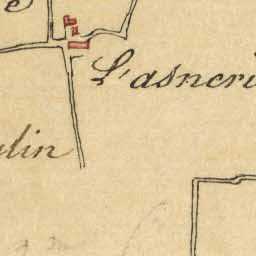 L'asneri
ulin